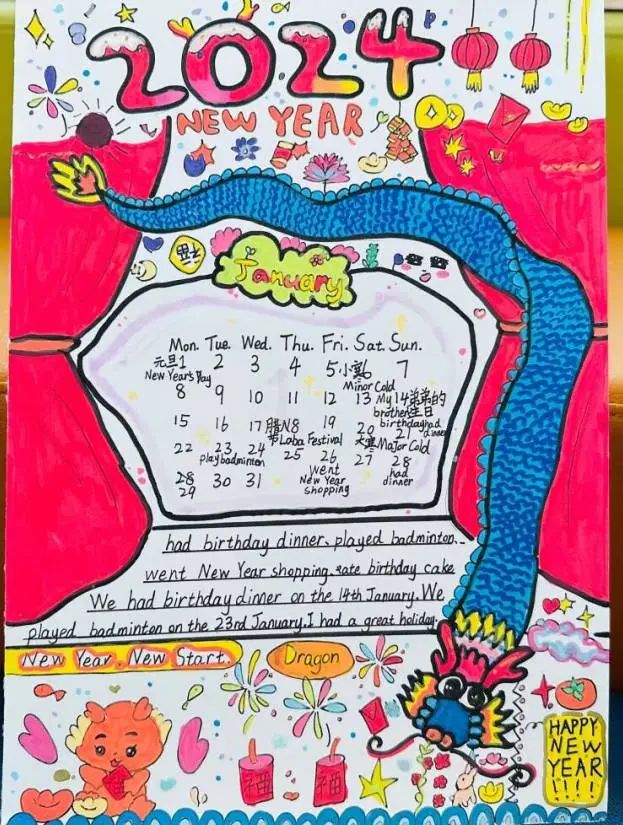 2024
NEW YEAR
January
Mon. Tue. Wed. Thu. Fri. Sat. Sun.
元旦1 2 3 4 5 小寒6 7
New Year's Day Minor Cold
8 9 10 11 12 13 My 14 弟弟的
brother 生日
birthday had
dinner
15 16 17 腊八8 19 20 21
节 Laba Festival 大寒 Major Cold
22 23 24 25 26 27 28
play badminton went had
New Year dinner
shopping
28
29 30 31
had birthday dinner、played badminton、
went New Year shopping、eate birthday cake
We had birthday dinner on the 14th January. We
played badminton on the 23rd January. I had a great holiday.
New Year. New Start.
Dragon
福 福
HAPPY
NEW
YEAR
!!!!